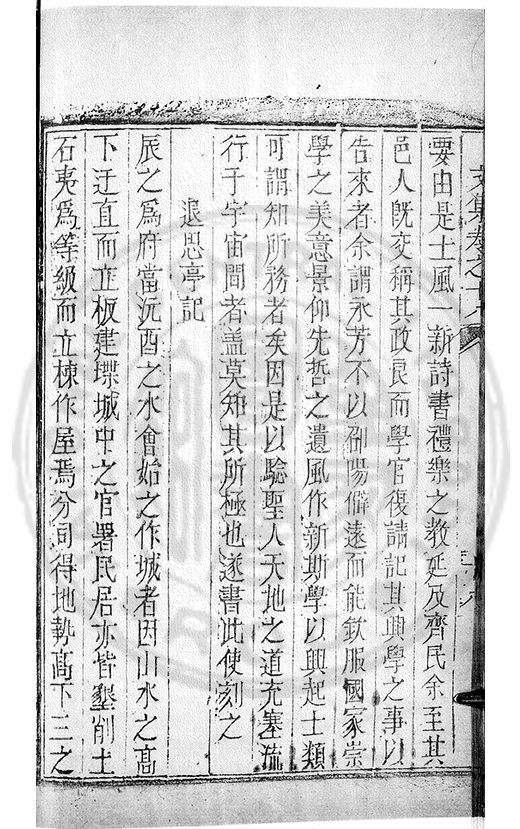 要由是士風一新詩書禮樂之教延及齊民余至其
邑人既交稱其政良而學官復請記其興學之事以
告來者余謂永芳不以邵陽僻遠而能欽服國家崇
學之美意景仰先哲之遺風作新斯學以興起士類
可謂知所務者矣因是以驗聖人天地之道充塞流
行于宇宙間者蓋莫知其所極也遂書此使刻之
退思亭記
辰之爲府當沅酉之水會始之作城者因山水之高
下迂直而立板建堞城中之官署民居亦皆墾削土
石夷爲等級而立棟作屋焉分司得地勢高下三之